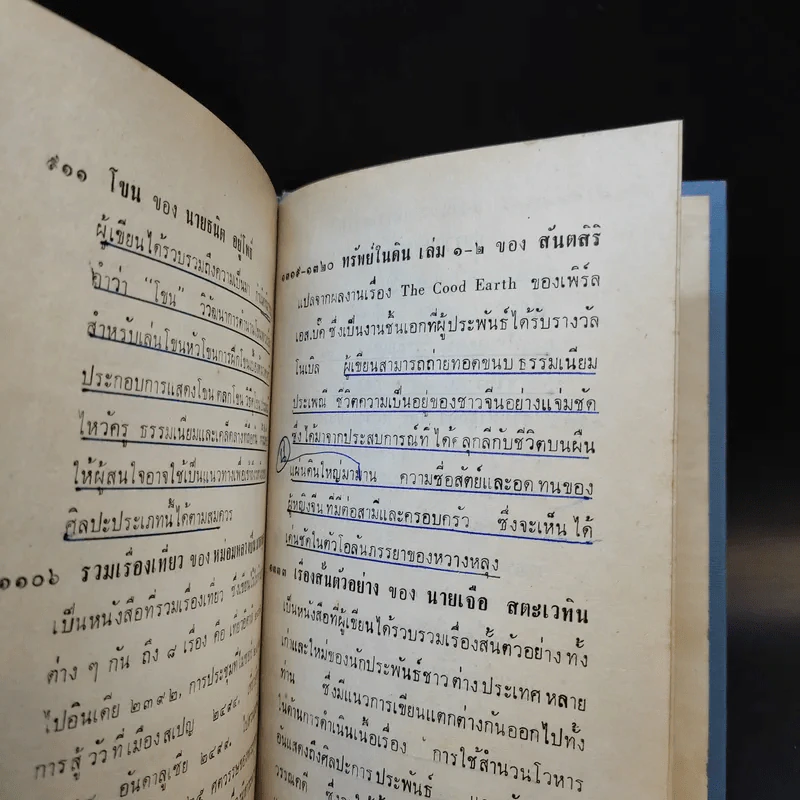 ๙๑๑ โขน ของ นายธนิต อยู่โพธิ์
ผู้เขียนได้รวบรวมถึงความเป็นมา
คำว่า "โขน" วิวัฒนาการด้านงาน
สำหรับเล่นโขนหัวโขนการฝึกโขน
ประกอบการแสดงโขน ตลกโขน วิธี
ไหว้ครู ธรรมเนียมและเคล็ดลาง
ให้ผู้สนใจอาจใช้เป็นแนวทางเพื่อ
ศิลปะประเภทนี้ได้ตามสมควร
๑๑๐๖ รวมเรื่องเที่ยว ของ หม่อมหลวง
เป็นหนังสือที่รวมเรื่องเที่ยว ซึ่งเขียนไว้
ต่าง ๆ กัน ถึง ๘ เรื่อง คือ
ไปอินเดีย ๒๓๙๒, การประชุมที่
การสู้ วัว ที่ เมืองสเปญ ๒๔๙๔,
อันดาลูเซีย ๒๔๙๙,
๑๓๑๙-๑๓๒๐ ทรัพย์ในดิน เล่ม ๑-๒ ของ สันตสิริ
แปลจากผลงานเรื่อง The Cood Earth ของเพิร์ล
เอส.บั๊ค ซึ่งเป็นงานชั้นเอกที่ผู้ประพันธ์ได้รับรางวัล
โนเบิล ผู้เขียนสามารถถ่ายทอดขนบ ธรรมเนียม
ประเพณี ชีวิตความเป็นอยู่ของชาวจีนอย่างแจ่มชัด
ซึ่งได้มาจากประสบการณ์ที่ ได้คลุกคลีกับชีวิตบนผืน
แผ่นดินใหญ่มานาน ความซื่อสัตย์และอดทนของ
ผู้หญิงจีน ที่มีต่อสามีและครอบครัว ซึ่งจะเห็น ได้
เด่นชัดในตัวโอลันภรรยาของหวางหลุง
เรื่องสั้นตัวอย่าง ของ นายเจือ สตะเวทิน
เป็นหนังสือที่ผู้เขียนได้รวบรวมเรื่องสั้นตัวอย่าง ทั้ง
เก่าและใหม่ของนักประพันธ์ชาว ต่าง ประเทศ หลาย
ท่าน ซึ่งมีแนวการเขียนแตกต่างกันออกไปทั้ง
ในด้านการดำเนินเนื้อเรื่อง การใช้สำนวนโวหาร
อันแสดงถึงศิลปะการ ประพันธ์
วรรณคดี